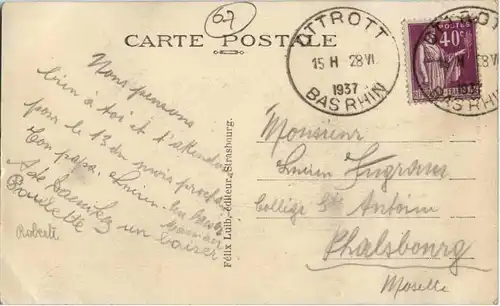 07
CARTE POSTALE
OTTROTT
15 H 28 VI
1937
BAS RHIN
40c
Nous pensons
bien à toi et t'attendons
pour le 13 du mois prochain
Ton papa. Lucien.
Maman
un baiser
Paulette
Robert
Félix Luib, éditeur, Strasbourg.
Monsieur
Lucien
Collège St Antoine
Phalsbourg
Moselle